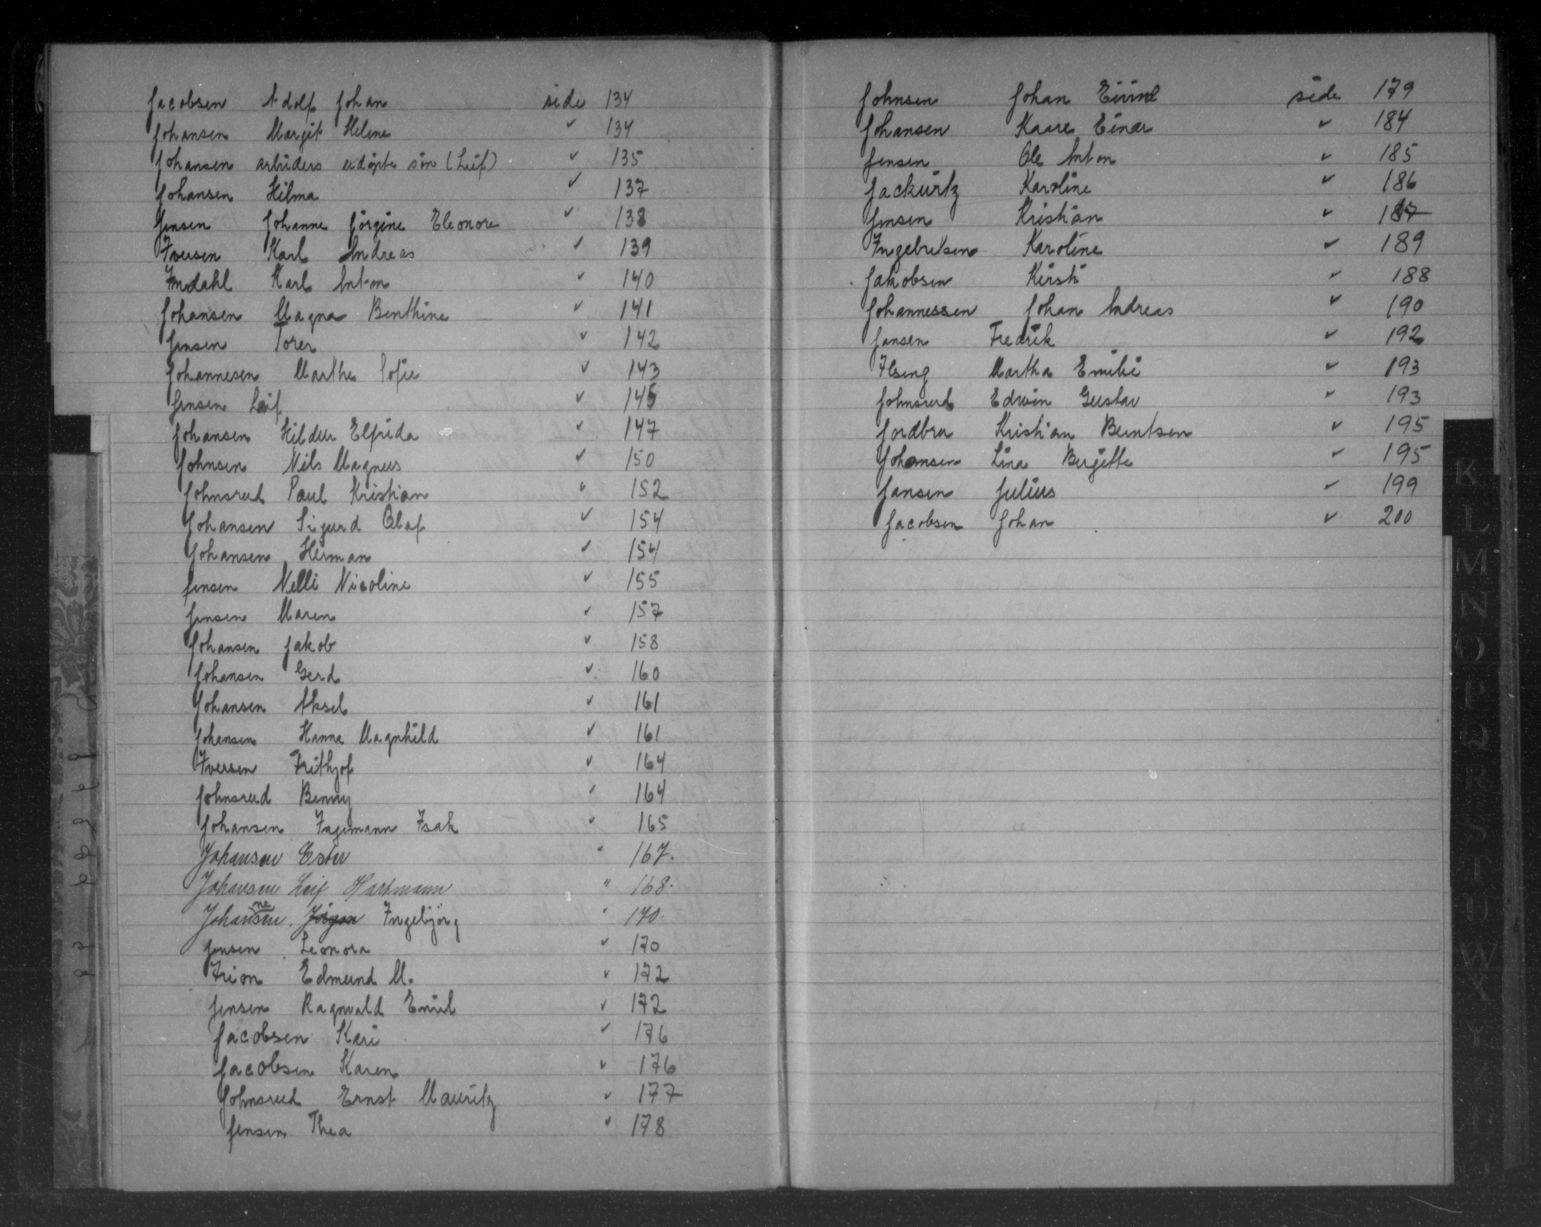 Jacobsen Adolf Johan side 134
Johansen Margit Helene " 134
Johansen arbeiders udøpte søn (Leif) " 135
Johansen Hilma " 137
Jensen Johanne Jørgine Eleonore " 138
Iversen Karl Andreas " 139
Karl Anton " 140
Johansen Magna Benthine " 141
Jensen " 142
Johannesen Marthe Sofie " 143
Jensen Leif " 145
Johansen Hildur Elfrida " 147
Johnsen Nils Magnus " 150
Johnsrud Paul Kristian " 152
Johansen Sigurd Olaf " 154
Johansen Herman " 154
Jensen Nelli Nicoline " 155
Jensen Maren " 157
Johansen Jakob " 158
Johansen Gerd " 160
Johansen Aksel " 161
Johansen Hanna Magnhild " 161
Iversen Frithjof " 164
Johnsrud Benny " 164
Johansen Ingemann Isak " 165
Johansen Ester " 167.
Johansen Leif Hartmann " 168.
Johansen Ingebjörg " 170.
Jensen Leonora " 170
Irion Edmund M. " 172
Jensen Ragnvald Emil " 172
Jacobsen Kari " 176
Jacobsen Karen " 176
Johnsrud Ernst Mauritz " 177
Jensen Thea " 178
Johnsen Johan Eivind side 179
Johansen Kaare Einar " 184
Jensen Ole Anton " 185
Jackwitz Karoline " 186
Jensen Kristian " 187
Ingebretsen Karoline " 189
Jakobsen Kirsti " 188
Johannessen Johan Andreas " 190
Jansen Fredrik " 192
Ilseng Martha Emilie " 193
Johnsrud Edwin Gustav " 193
Jordbra Kristian Berntsen " 195
Johansen Lina Birgitte " 195
Jansen Julius " 199
Jacobsen Johan " 200
K
L
M
N
O
P
Q
R
S
T
U
W